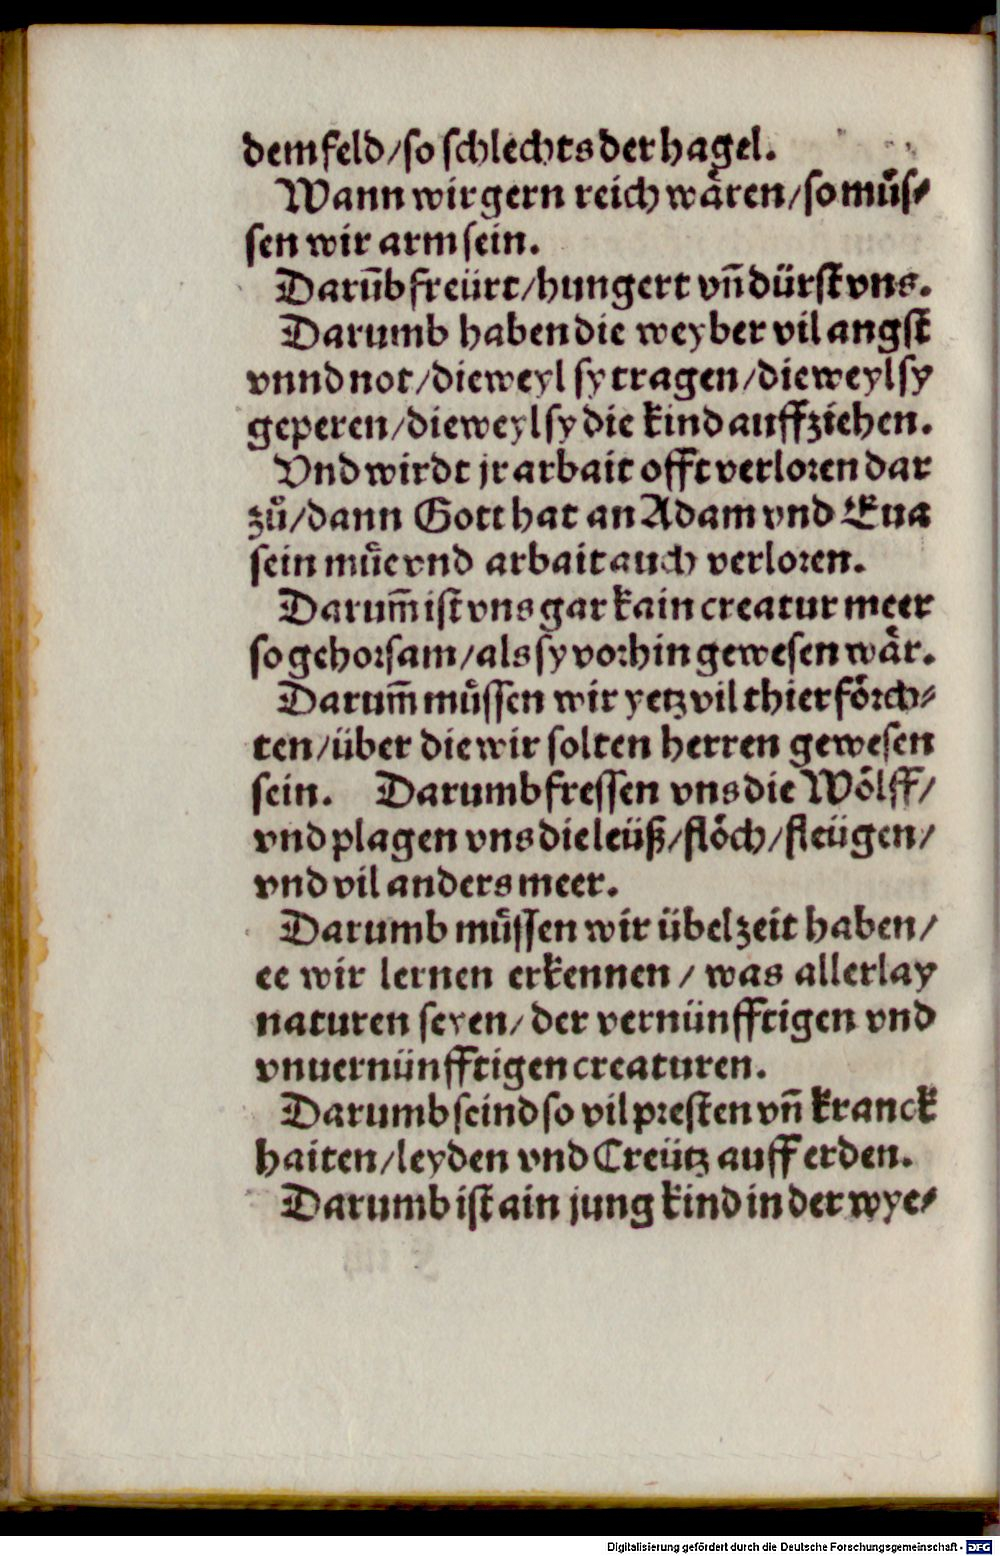 dem feld/so schlechts der hagel.
Wann wir gern reich wåren/so můs⸗
sen wir arm sein.
Darūb freürt/hungert vñ dürst vns.
Darumb haben die weyber vil angst
vnnd not/dieweyl sy tragen/dieweyl sy
geperen/dieweyl sy die kind auffziehen.
Vnd wirdt jr arbait offt verloren dar
zů/dann Gott hat an Adam vnd Eua
sein můe vnd arbait auch verloren.
Darum̄ ist vns gar kain creatur meer
so gehorsam/als sy vorhin gewesen wår.
Darum̄ můssen wir yetz vil thier förch⸗
ten/über die wir solten herren gewesen
sein. Darumb fressen vns die Wölff/
vnd plagen vns die leüß/flöch/fleügen/
vnd vil anders meer.
Darumb můssen wir übel zeit haben/
ee wir lernen erkennen/was allerlay
naturen seyen/der vernünfftigen vnd
vnuernünfftigen creaturen.
Darumb seind so vil presten vñ kranck
haiten/leyden vnd Creütz auff erden.
Darumb ist ain jung kind in der wye⸗
Digitalisierung gefördert durch die Deutsche Forschungsgemeinschaft - DFG